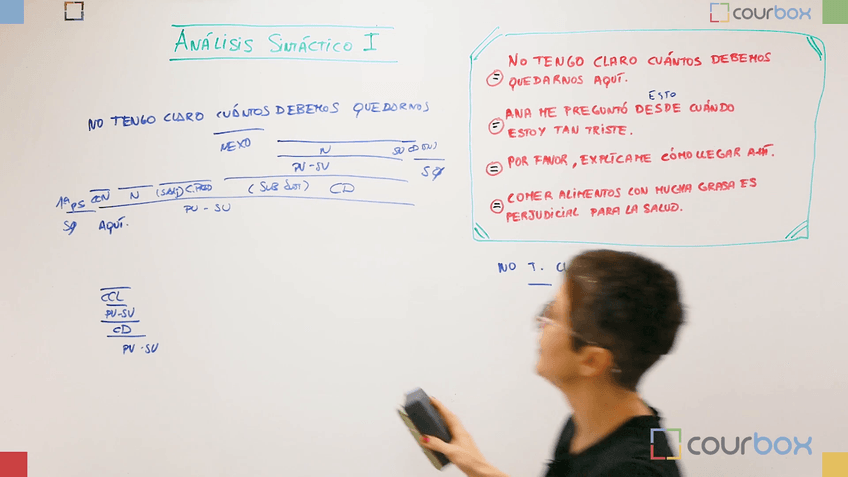 courbox
ANÁLISIS SINTÁCTICO I
NO TENGO CLARO CUÁNTOS DEBEMOS
QUEDARNOS AQUÍ.
ESTO
ANA ME PREGUNTÓ DESDE CUÁNDO
ESTOY TAN TRISTE.
POR FAVOR, EXPLÍCAME CÓMO LLEGAR
COMER ALIMENTOS CON MUCHA GRASA ES
PERJUDICIAL PARA LA SALUD.
NO TENGO CLARO CUÁNTOS DEBEMOS QUEDARNOS
NEXO
N
PV-SV
1ªps CCN N (SADJ) C.PRED (SUB SUST) CD
PV - SV
AQUÍ.
NO T.
CCL
PV-SV
CD
PV-SV
courbox